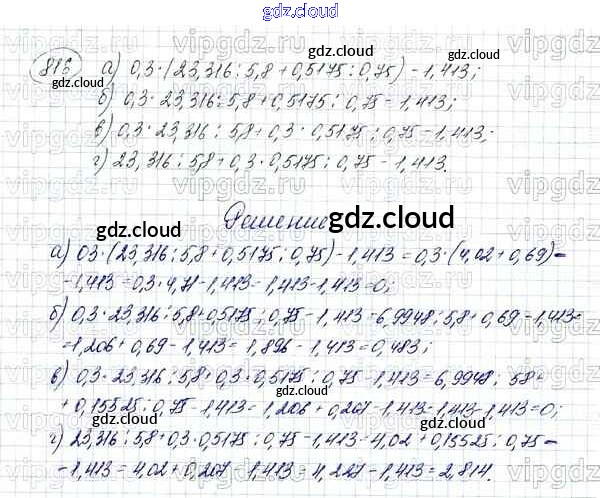 gdz.cloud
816 а) 0,3·(23,316:5,8+0,5175:0,75)-1,413;
б) 0,3·23,316:5,8+0,5175:0,75-1,413;
в) 0,3·23,316:5,8+0,3·0,5175:0,75-1,413;
г) 23,316:5,8+0,3·0,5175:0,75-1,413.
Решение
а) 03·(23,316:5,8+0,5175:0,75)-1,413=0,3·(4,02+0,69)-
-1,413=0,3·4,71-1,413=1,413-1,413=0;
б) 0,3·23,316:5,8+0,5175:0,75-1,413=6,9948:5,8+0,69-1,413=
=1,206+0,69-1,413=1,896-1,413=0,483;
в) 0,3·23,316:5,8+0,3·0,5175:0,75-1,413=6,9948:58+
+0,15525:0,75-1,413=1,206+0,207-1,413=1,413-1,413=0;
г) 23,316:5,8+0,3·0,5175:0,75-1,413=4,02+0,15525:0,75-
-1,413=4,02+0,207-1,413=4,227-1,413=2,814.